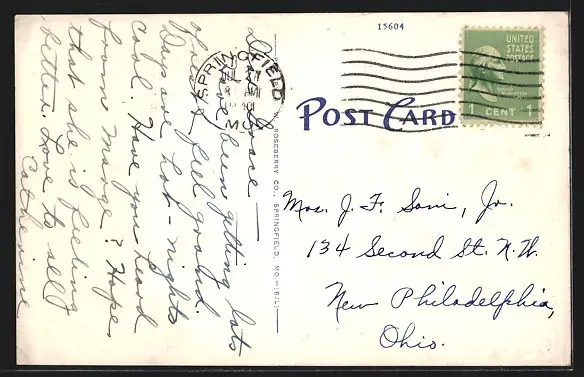 15604
UNITED
STATES
POSTAGE
1 CENT 1
SPRINGFIELD
JUL
AM
MO.
POST CARD
ROSEBERRY CO., SPRINGFIELD, MO.
Mrs. J. F. Soni, Jr.
134 Second St. N.W.
New Philadelphia,
Ohio.
Dear Grace —
Have been getting lots
of rest & feel grand.
Days are hot - nights
cool. Have you heard
from Marge? Hope
that she is feeling
better. Love to all
Catherine